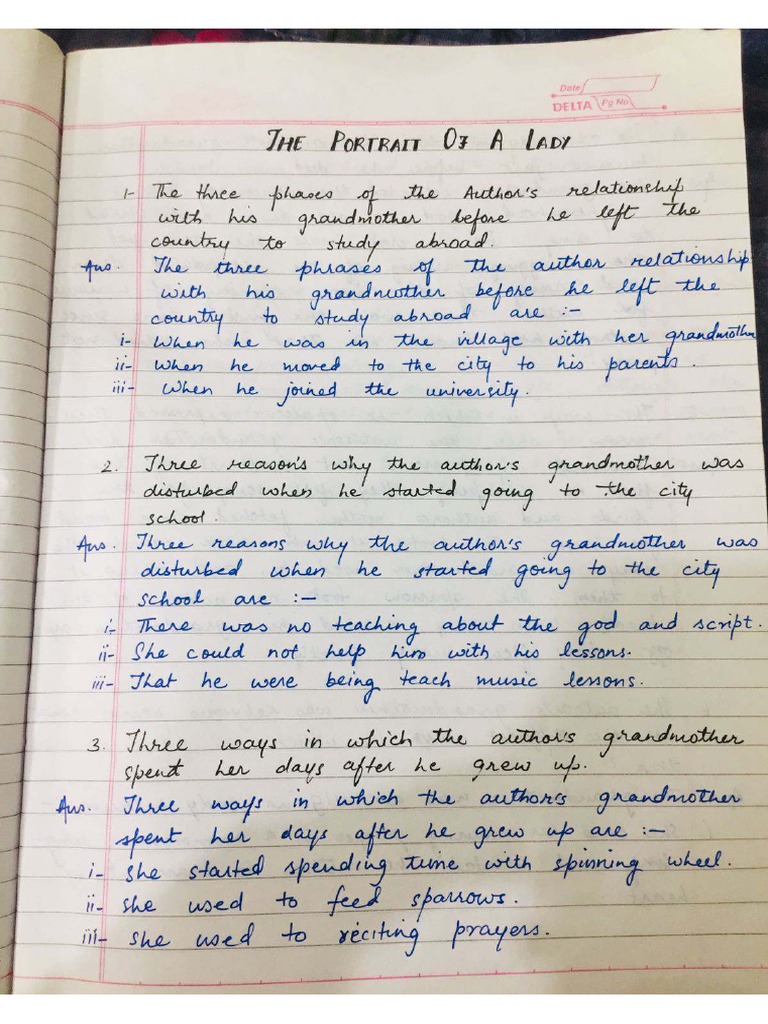 Date
DELTA Pg No
THE PORTRAIT Of A LADY
1- The three phases of the Author's relationship
with his grandmother before he left the
country to study abroad.
Ans. The three phrases of the author relationship
with his grandmother before he left the
country to study abroad are :-
i- When he was in the village with her grandmother
ii- When he moved to the city to his parents.
iii- When he joined the university.
2. Three reason's why the author's grandmother was
disturbed when he started going to the city
school.
Ans. Three reasons why the author's grandmother was
disturbed when he started going to the city
school are :-
i- There was no teaching about the god and script.
ii- She could not help him with his lessons.
iii- That he were being teach music lessons.
3. Three ways in which the author's grandmother
spent her days after he grew up.
Ans. Three ways in which the author's grandmother
spent her days after he grew up are :-
i- She started spending time with spinning wheel.
ii- she used to feed sparrows.
iii- she used to reciting prayers.